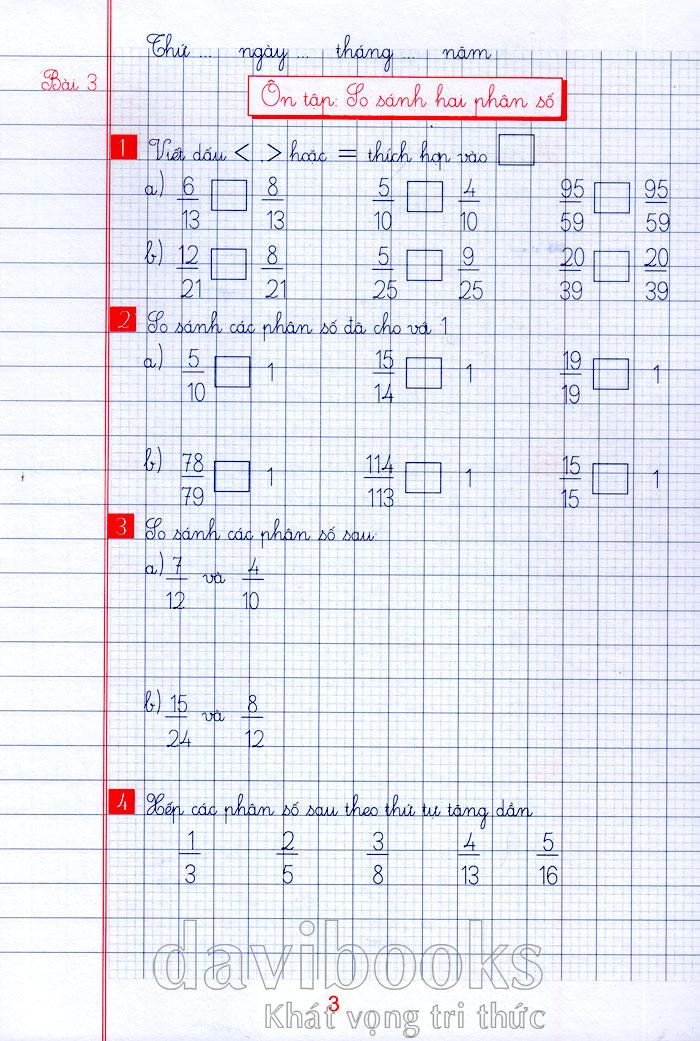 Thứ ... ngày ... tháng ... năm
Bài 3
Ôn tập: So sánh hai phân số
1 Viết dấu < , > hoặc = thích hợp vào □
a) 6/13 □ 8/13 5/10 □ 4/10 95/59 □ 95/59
b) 12/21 □ 8/21 5/25 □ 9/25 20/39 □ 20/39
2 So sánh các phân số đã cho với 1
a) 5/10 □ 1 15/14 □ 1 19/19 □ 1
b) 78/79 □ 1 114/113 □ 1 15/15 □ 1
3 So sánh các phân số sau:
a) 7/12 và 4/10
b) 15/24 và 8/12
4 Xếp các phân số sau theo thứ tự tăng dần
1/3 2/5 3/8 4/13 5/16
davibooks
3
Khát vọng tri thức